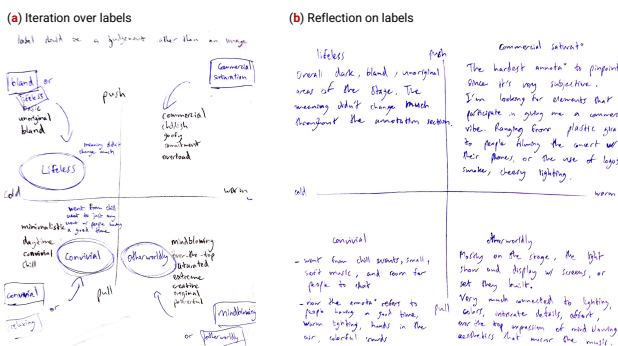 (a) Iteration over labels
label should be a judgement other than an image
bland or
lifeless
basic
unoriginal
bland
push
Commercial
saturation
commercial
childish
goofy
overload
meaning didn't
change much
Lifeless
cold
warm
went from chill
went to just any
people having
a good time
minimalistic
daytime
convivial
chill
Convivial
otherworldly
mindblowing
over-the-top
saturated
extreme
creative
original
powerful
pull
convivial
or
relaxing
mindblowing
or otherworldly
(b) Reflection on labels
lifeless
Overall dark, bland, unoriginal
areas of the stage. The
meaning didn't change much
throughout the annotation section.
push
Commercial saturat°
The hardest annota° to pinpoint
since it's very subjective.
I'm looking for elements that
participate in giving me a commerc
vibe. Ranging from plastic
to people filming the concert w/
their phones, or the use of logos
smoke, cheesy lighting.
cold
warm
convivial
- went from chill events, small,
soft music, and room for
people to chat
- now the annota° refers to
people having a good time,
warm lighting, hands in the
air, colorful
pull
otherworldly
Mostly on the stage, the light
show and display w/ screens, or
set they built.
Very much connected to lighting,
colors, intricate details, effort,
over the top expression of mind blowing
aesthetics that mirror the music.